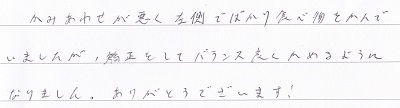 かみあわせが悪く左側でばかり食べ物をかんで
いましたが、矯正をしてバランス良くかめるように
なりました。ありがとうございます!